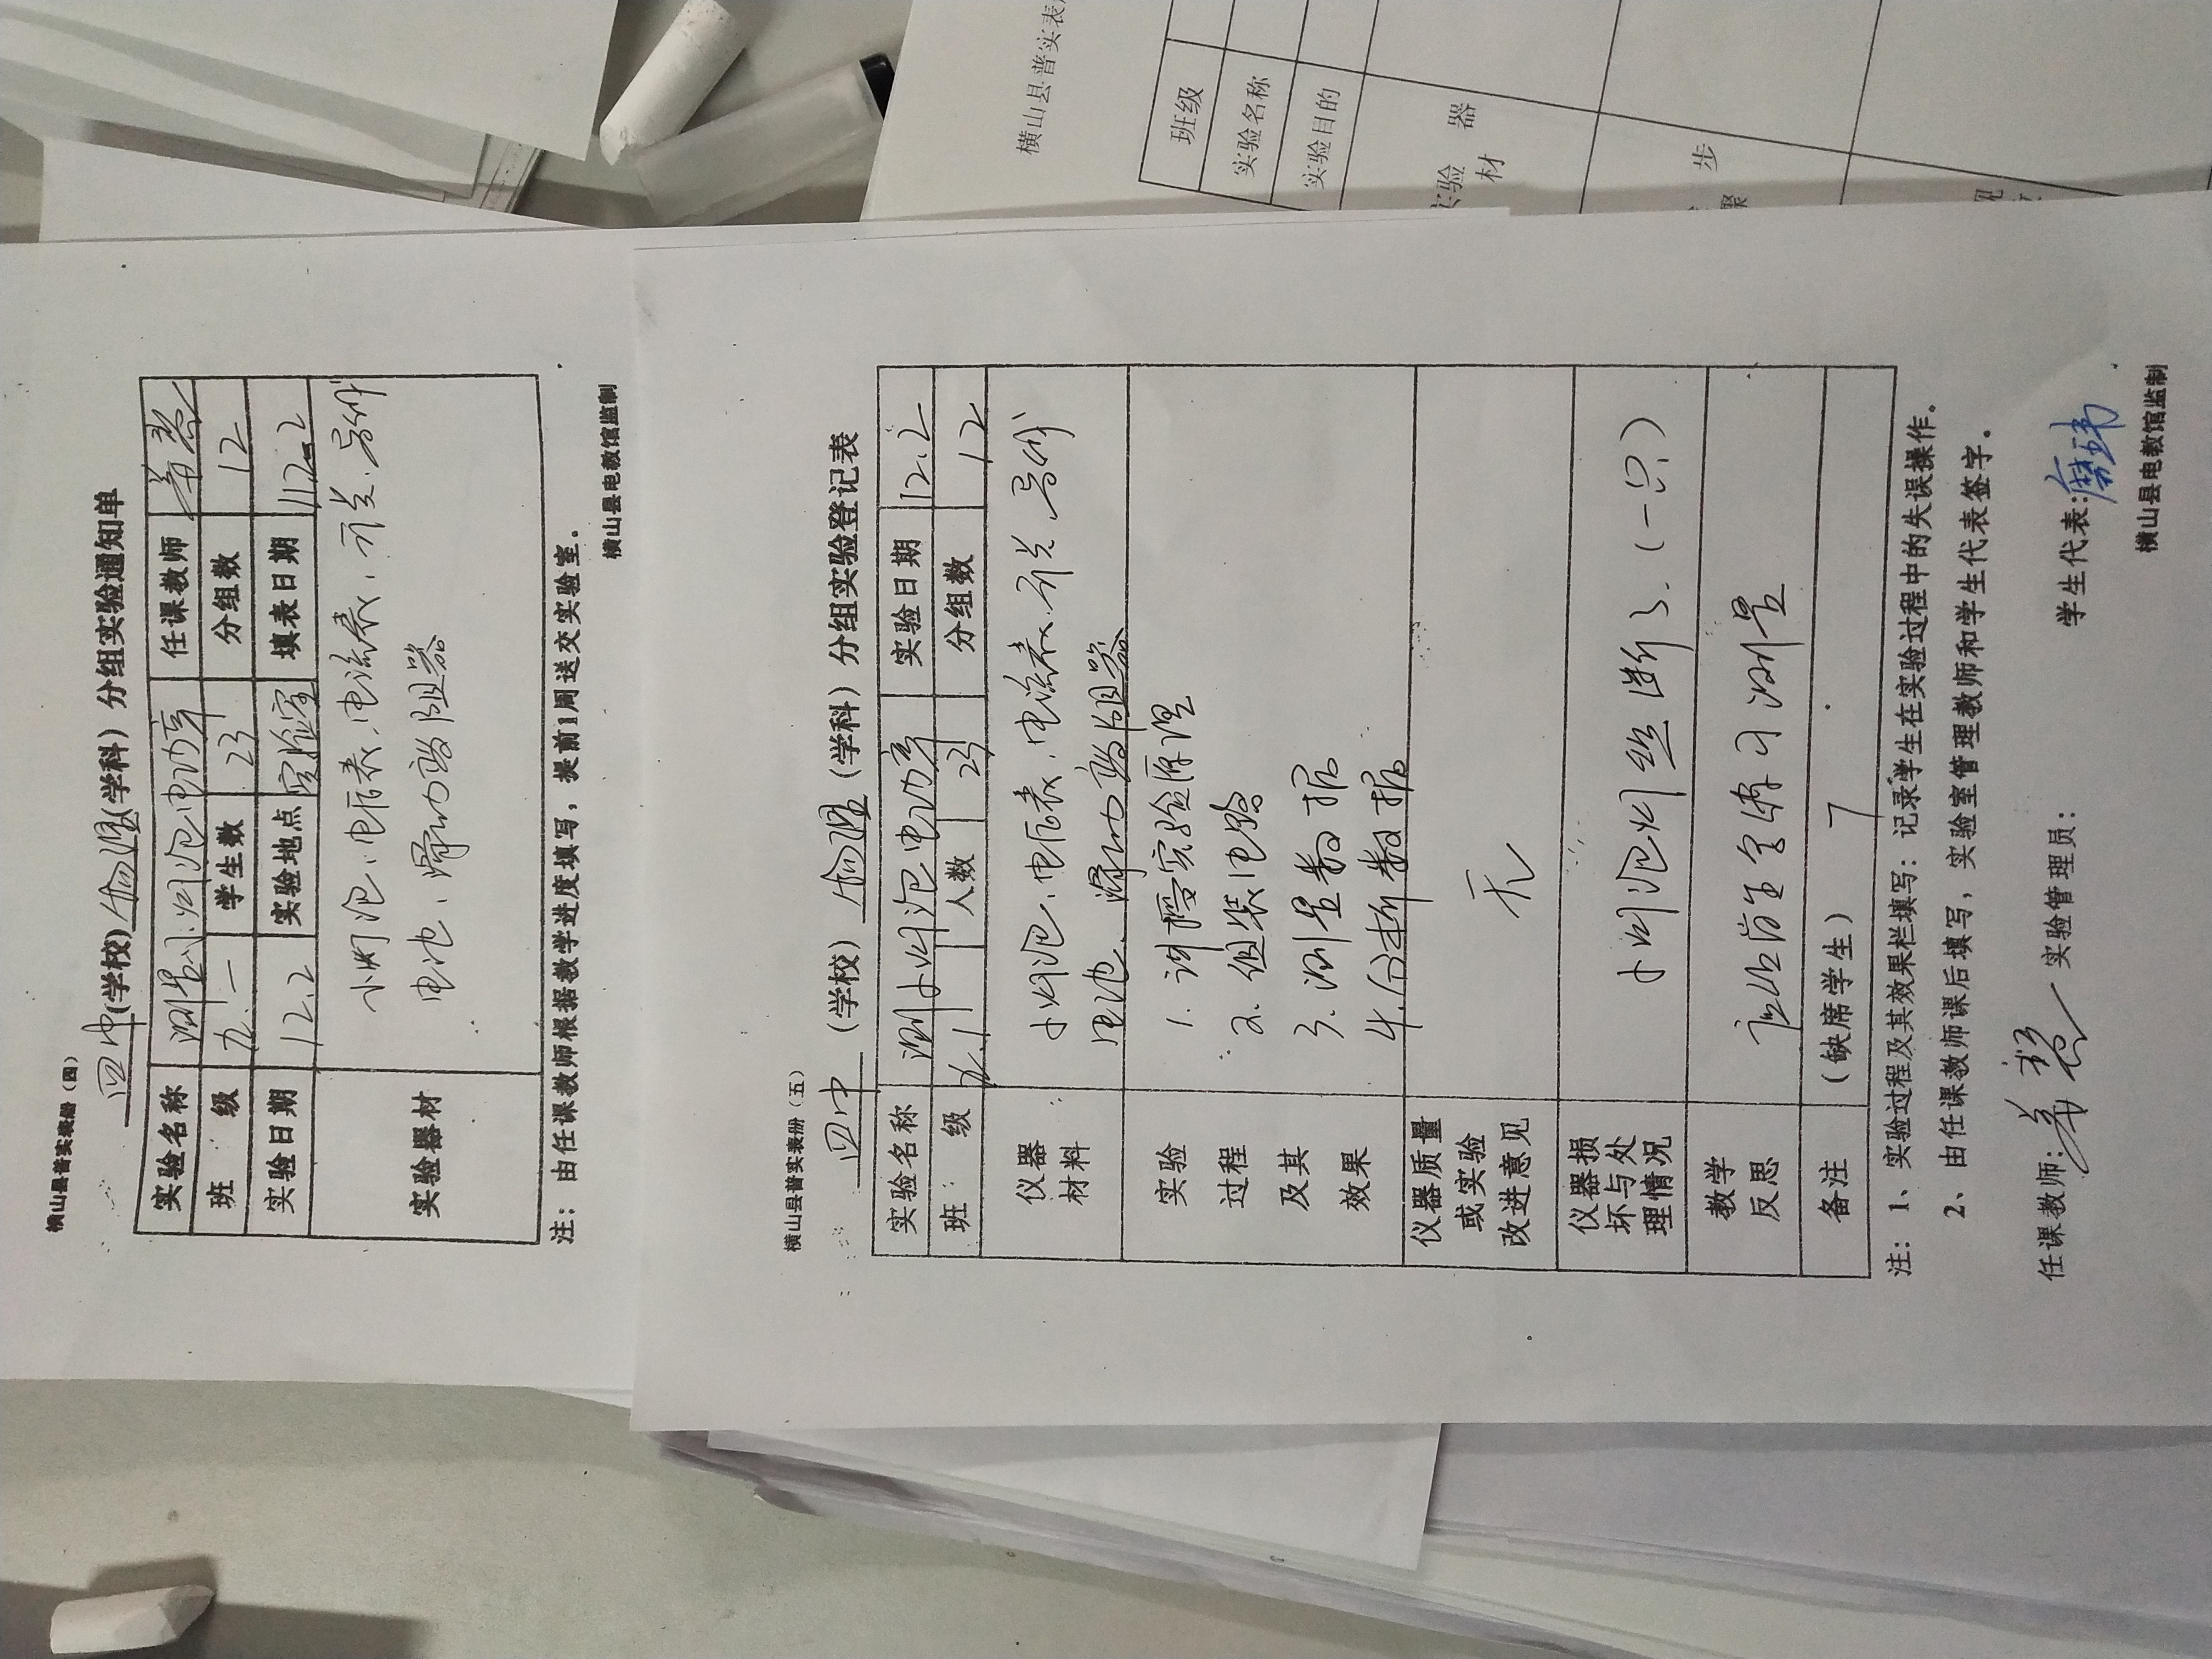 横山县普实表册（四）
四中(学校)物理(学科）分组实验通知单
实验名称 测量小灯泡电功率 任课教师
班 级 九.一 学生数 23 分组数 12
实验日期 12.2 实验地点 实验室 填表日期 12.2
实验器材 小灯泡、电压表、电流表、开关、导线
电池、滑动变阻器
注：由任课教师根据教学进度填写，提前1周送交实验室。
横山县电教馆监制
横山县普实表册（五）
四中（学校）物理（学科）分组实验登记表
实验名称 测小灯泡电功率 实验日期 12.2
班 级 九.1 人数 23 分组数 12
仪器材料 小灯泡、电压表、电流表、开关、导线
电池、滑动变阻器
实验过程及其效果
1. 讲授实验原理
2. 组装电路
3. 测量数据
4. 分析数据
仪器质量或实验改进意见 无
仪器损坏与处理情况 小灯泡灯丝断了.（一只）
教学反思 学生练习测量
备注 （缺席学生）
注：1、实验过程及其效果栏填写：记录学生在实验过程中的失误操作。
2、由任课教师课后填写，实验室管理教师和学生代表签字。
任课教师: 实验管理员： 学生代表:
横山县电教馆监制
横山县普实表
班级
实验名称
实验目的
实验器材
步